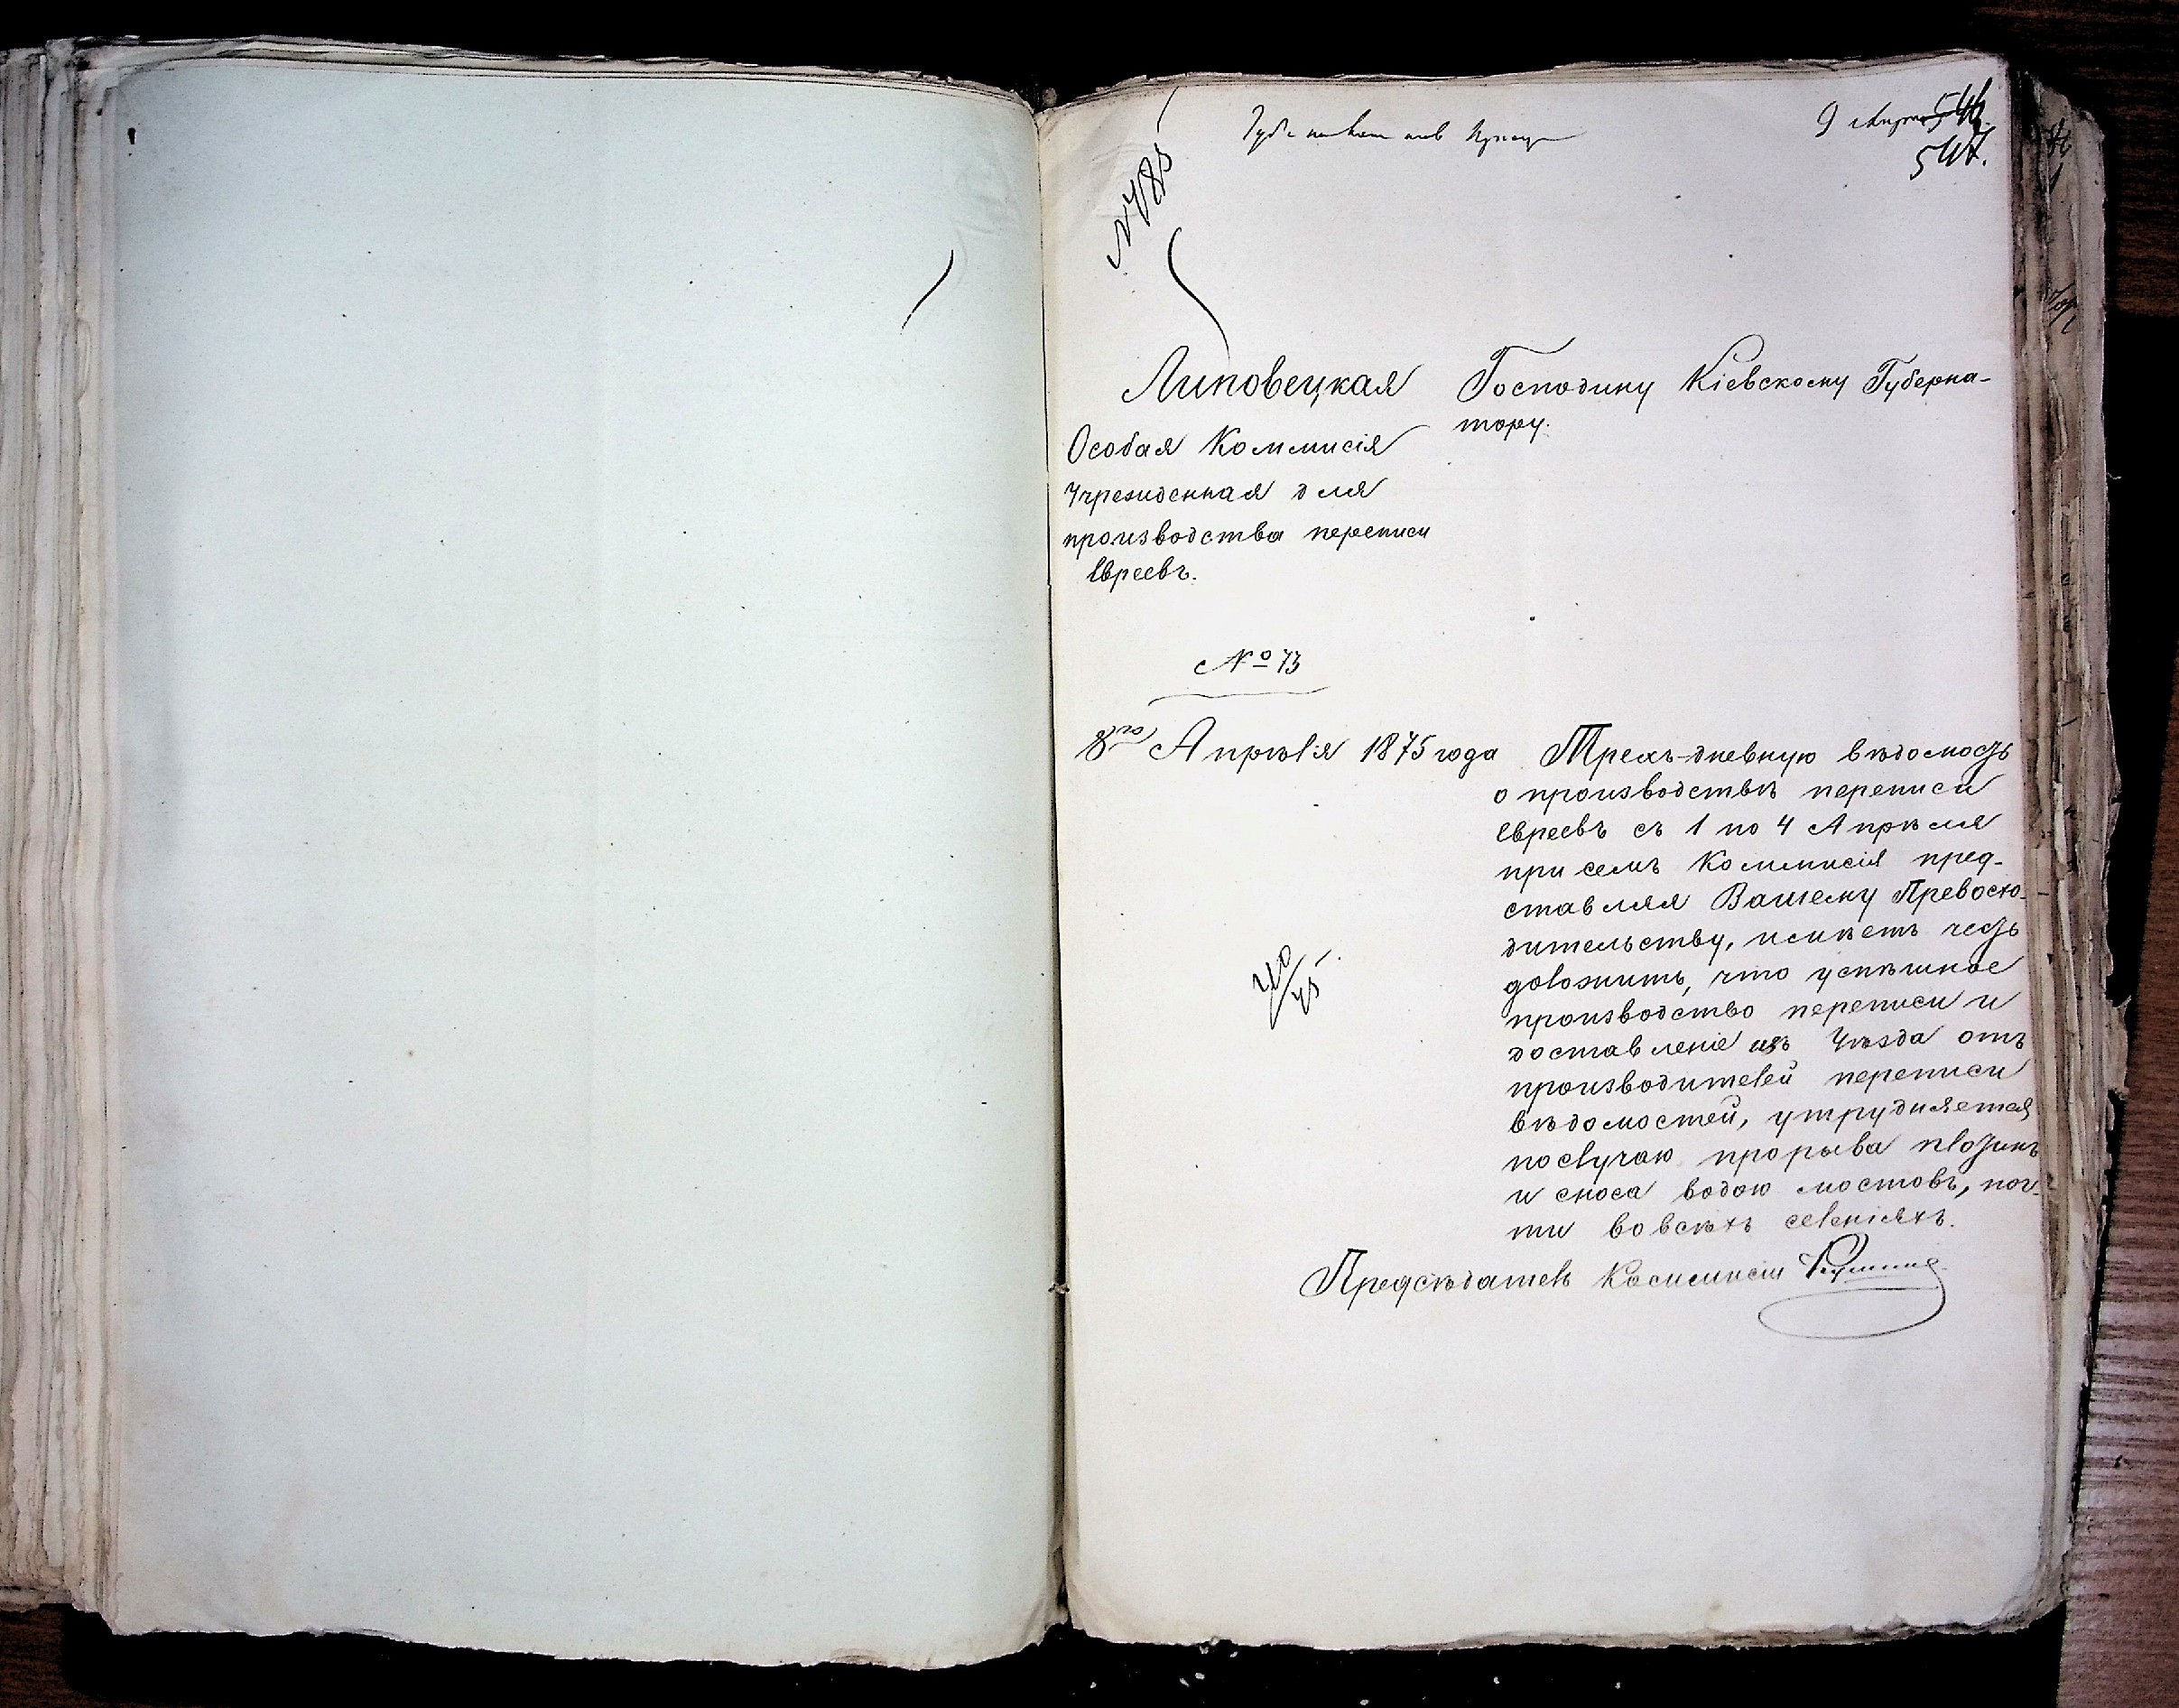 9 Апр
546.
547.
№ 785
Липовецкая
Особая Коммисія
Учрежденная для
производства переписи
Евреевъ.
№ 73
8го Апрѣля 1875 года
Господину Кіевскому Губерна-
тору.
Трехъ-дневную вѣдомость
о производствѣ переписи
Евреевъ съ 1 по 4 Апрѣля
при семъ Коммисія пред-
ставляя Вашему Превосхо-
дительству, имѣетъ честь
доложить, что успѣшное
производство переписи и
доставленіе изъ Уѣзда отъ
производителей переписи
вѣдомостей, утрудняется
по случаю прорыва плотинъ
и сноса водою мостовъ, поч-
ти во всѣхъ селеніяхъ.
Предсѣдатель Коммисіи